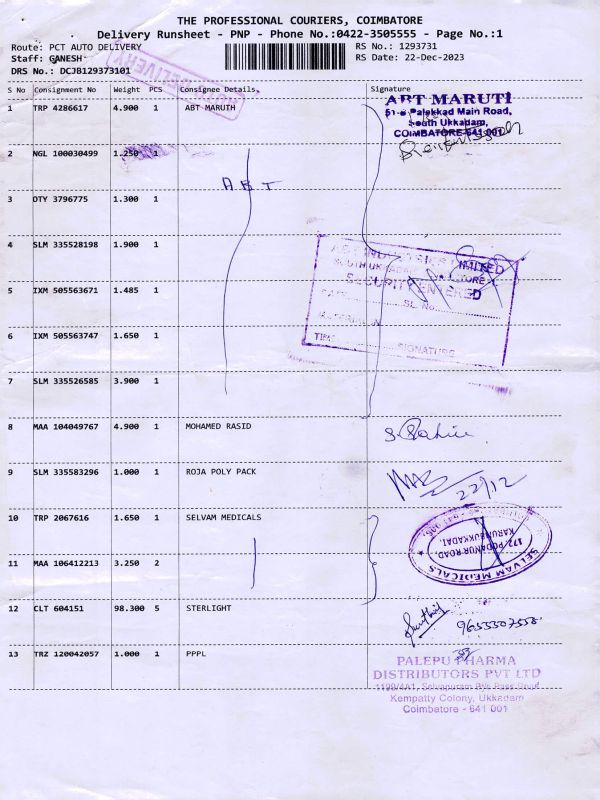 THE PROFESSIONAL COURIERS, COIMBATORE
Delivery Runsheet - PNP - Phone No.:0422-3505555 - Page No.:1
Route: PCT AUTO DELIVERY RS No.: 1293731
Staff: GANESH RS Date: 22-Dec-2023
DRS No.: DCJB129373101
DELIVERY
S No Consignment No Weight PCS Consignee Details Signature
1 TRP 4286617 4.900 1 ABT MARUTH
ABT MARUTI
Palakkad Main Road,
South Ukkadam,
COIMBATORE-641 001
2 NGL 100030499 1.250 1
ABT
3 DTY 3796775 1.300 1
4 SLM 335528198 1.900 1
LIMITED
SOUTH UKKADAM
SECURITY ENTERED
5 IXM 505563671 1.485 1
SL. No.
6 IXM 505563747 1.650 1
TIME SIGNATURE
7 SLM 335526585 3.900 1
8 MAA 104049767 4.900 1 MOHAMED RASID
9 SLM 335583296 1.000 1 ROJA POLY PACK
22/12
10 TRP 2067616 1.650 1 SELVAM MEDICALS
SELVAM MEDICALS
172, PODANUR ROAD,
KARUMBUKKADAI,
11 MAA 106412213 3.250 2
12 CLT 604151 98.300 5 STERLIGHT
9655507558
13 TRZ 120042057 1.000 1 PPPL
PALEPU PHARMA
DISTRIBUTORS PVT LTD
1199/4A1, Selvapuram Bye Pass Road
Kempatty Colony, Ukkadam
Coimbatore - 641 001